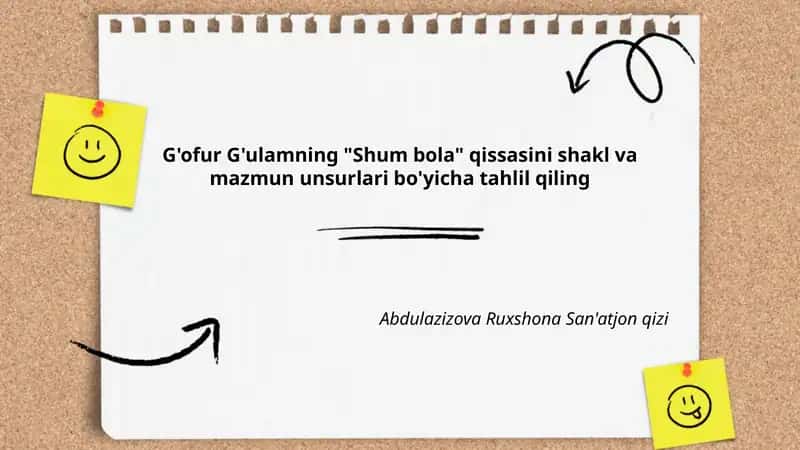 G'ofur G'ulamning "Shum bola" qissasini shakl va
mazmun unsurlari bo'yicha tahlil qiling
Abdulazizova Ruxshona San'atjon qizi